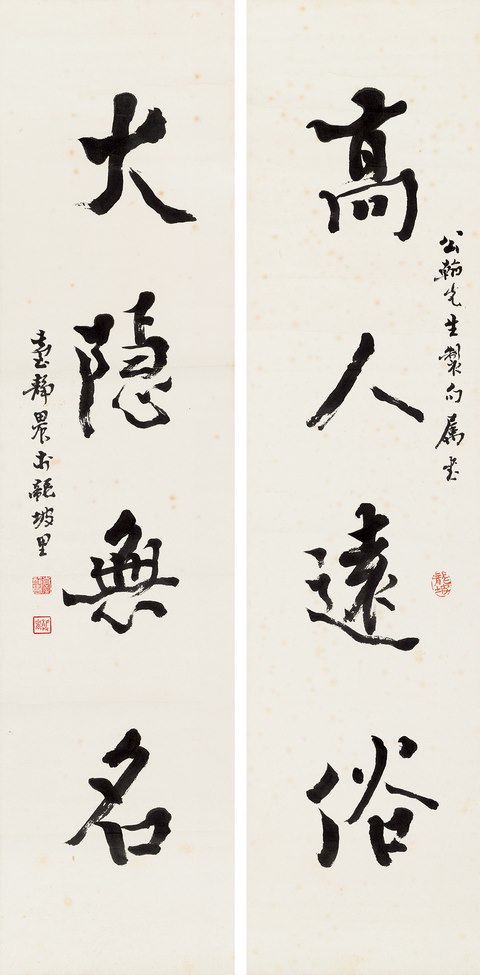 高人遠俗
公翰先生製句屬書
大隐無名
臺静農於龍坡里
龍坡